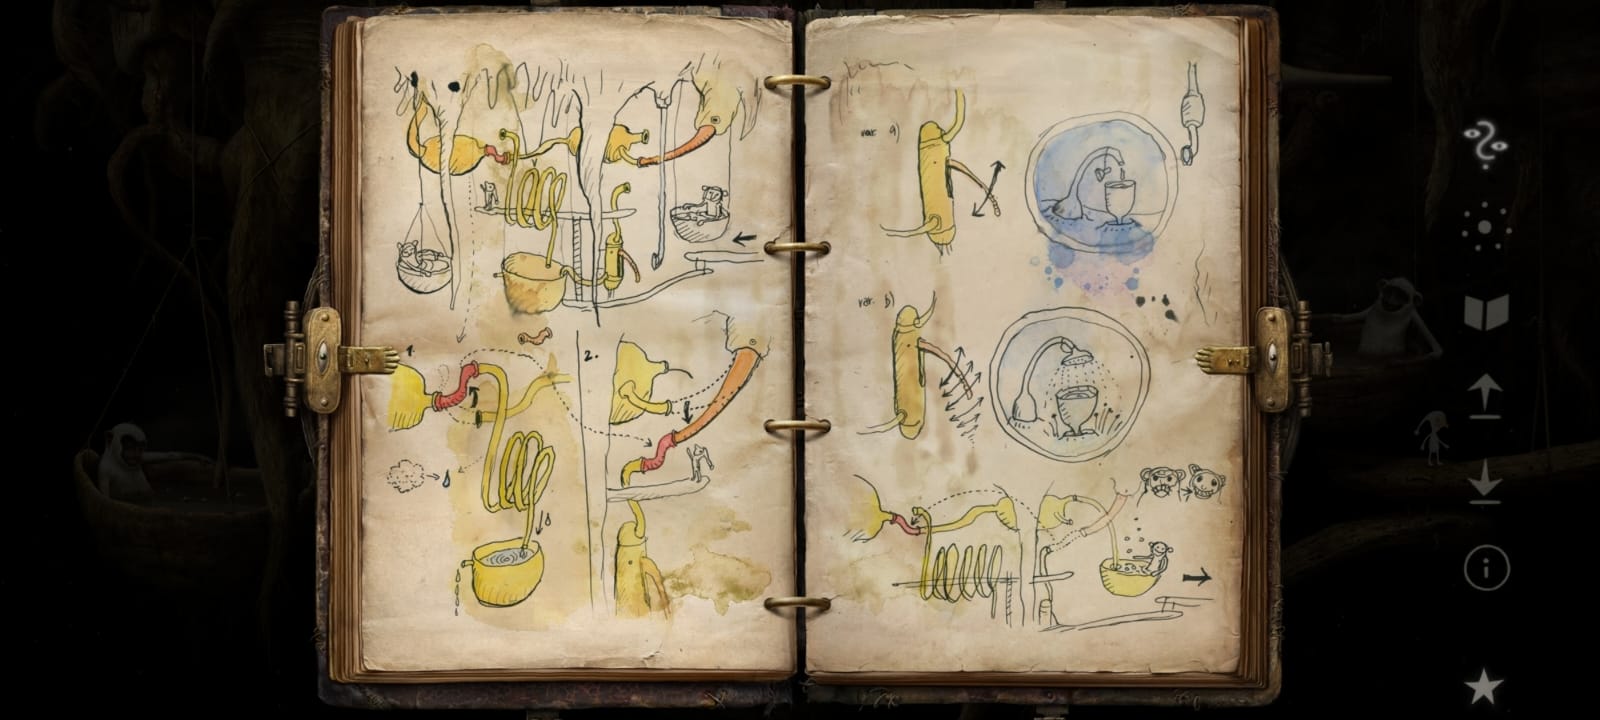 1.
2.
var. a)
var. b)